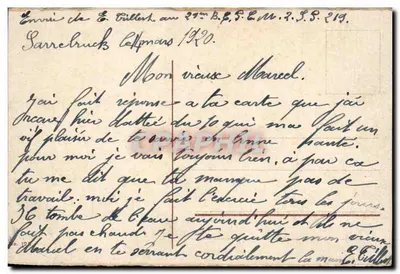 Envoi de E. Tillert au 29me B.C.P. C.M.2 S.P. 219.
Sarrebruck le mars 1920.
Mon vieux Marcel.
j'ai fait réponse a ta carte que j'ai
hier dattée du 10 qui ma fait un
plaisir de te en bonne santé.
pour moi je vais toujours bien, a par ca
tu me dit que tu manque pas de
travail. moi je fait l'exercice tous les jours.
tombe de l'eau aujourd'hui et il ne
fait pas chaud. Je te quitte mon vieux
Marcel en te serrant cordialement la main